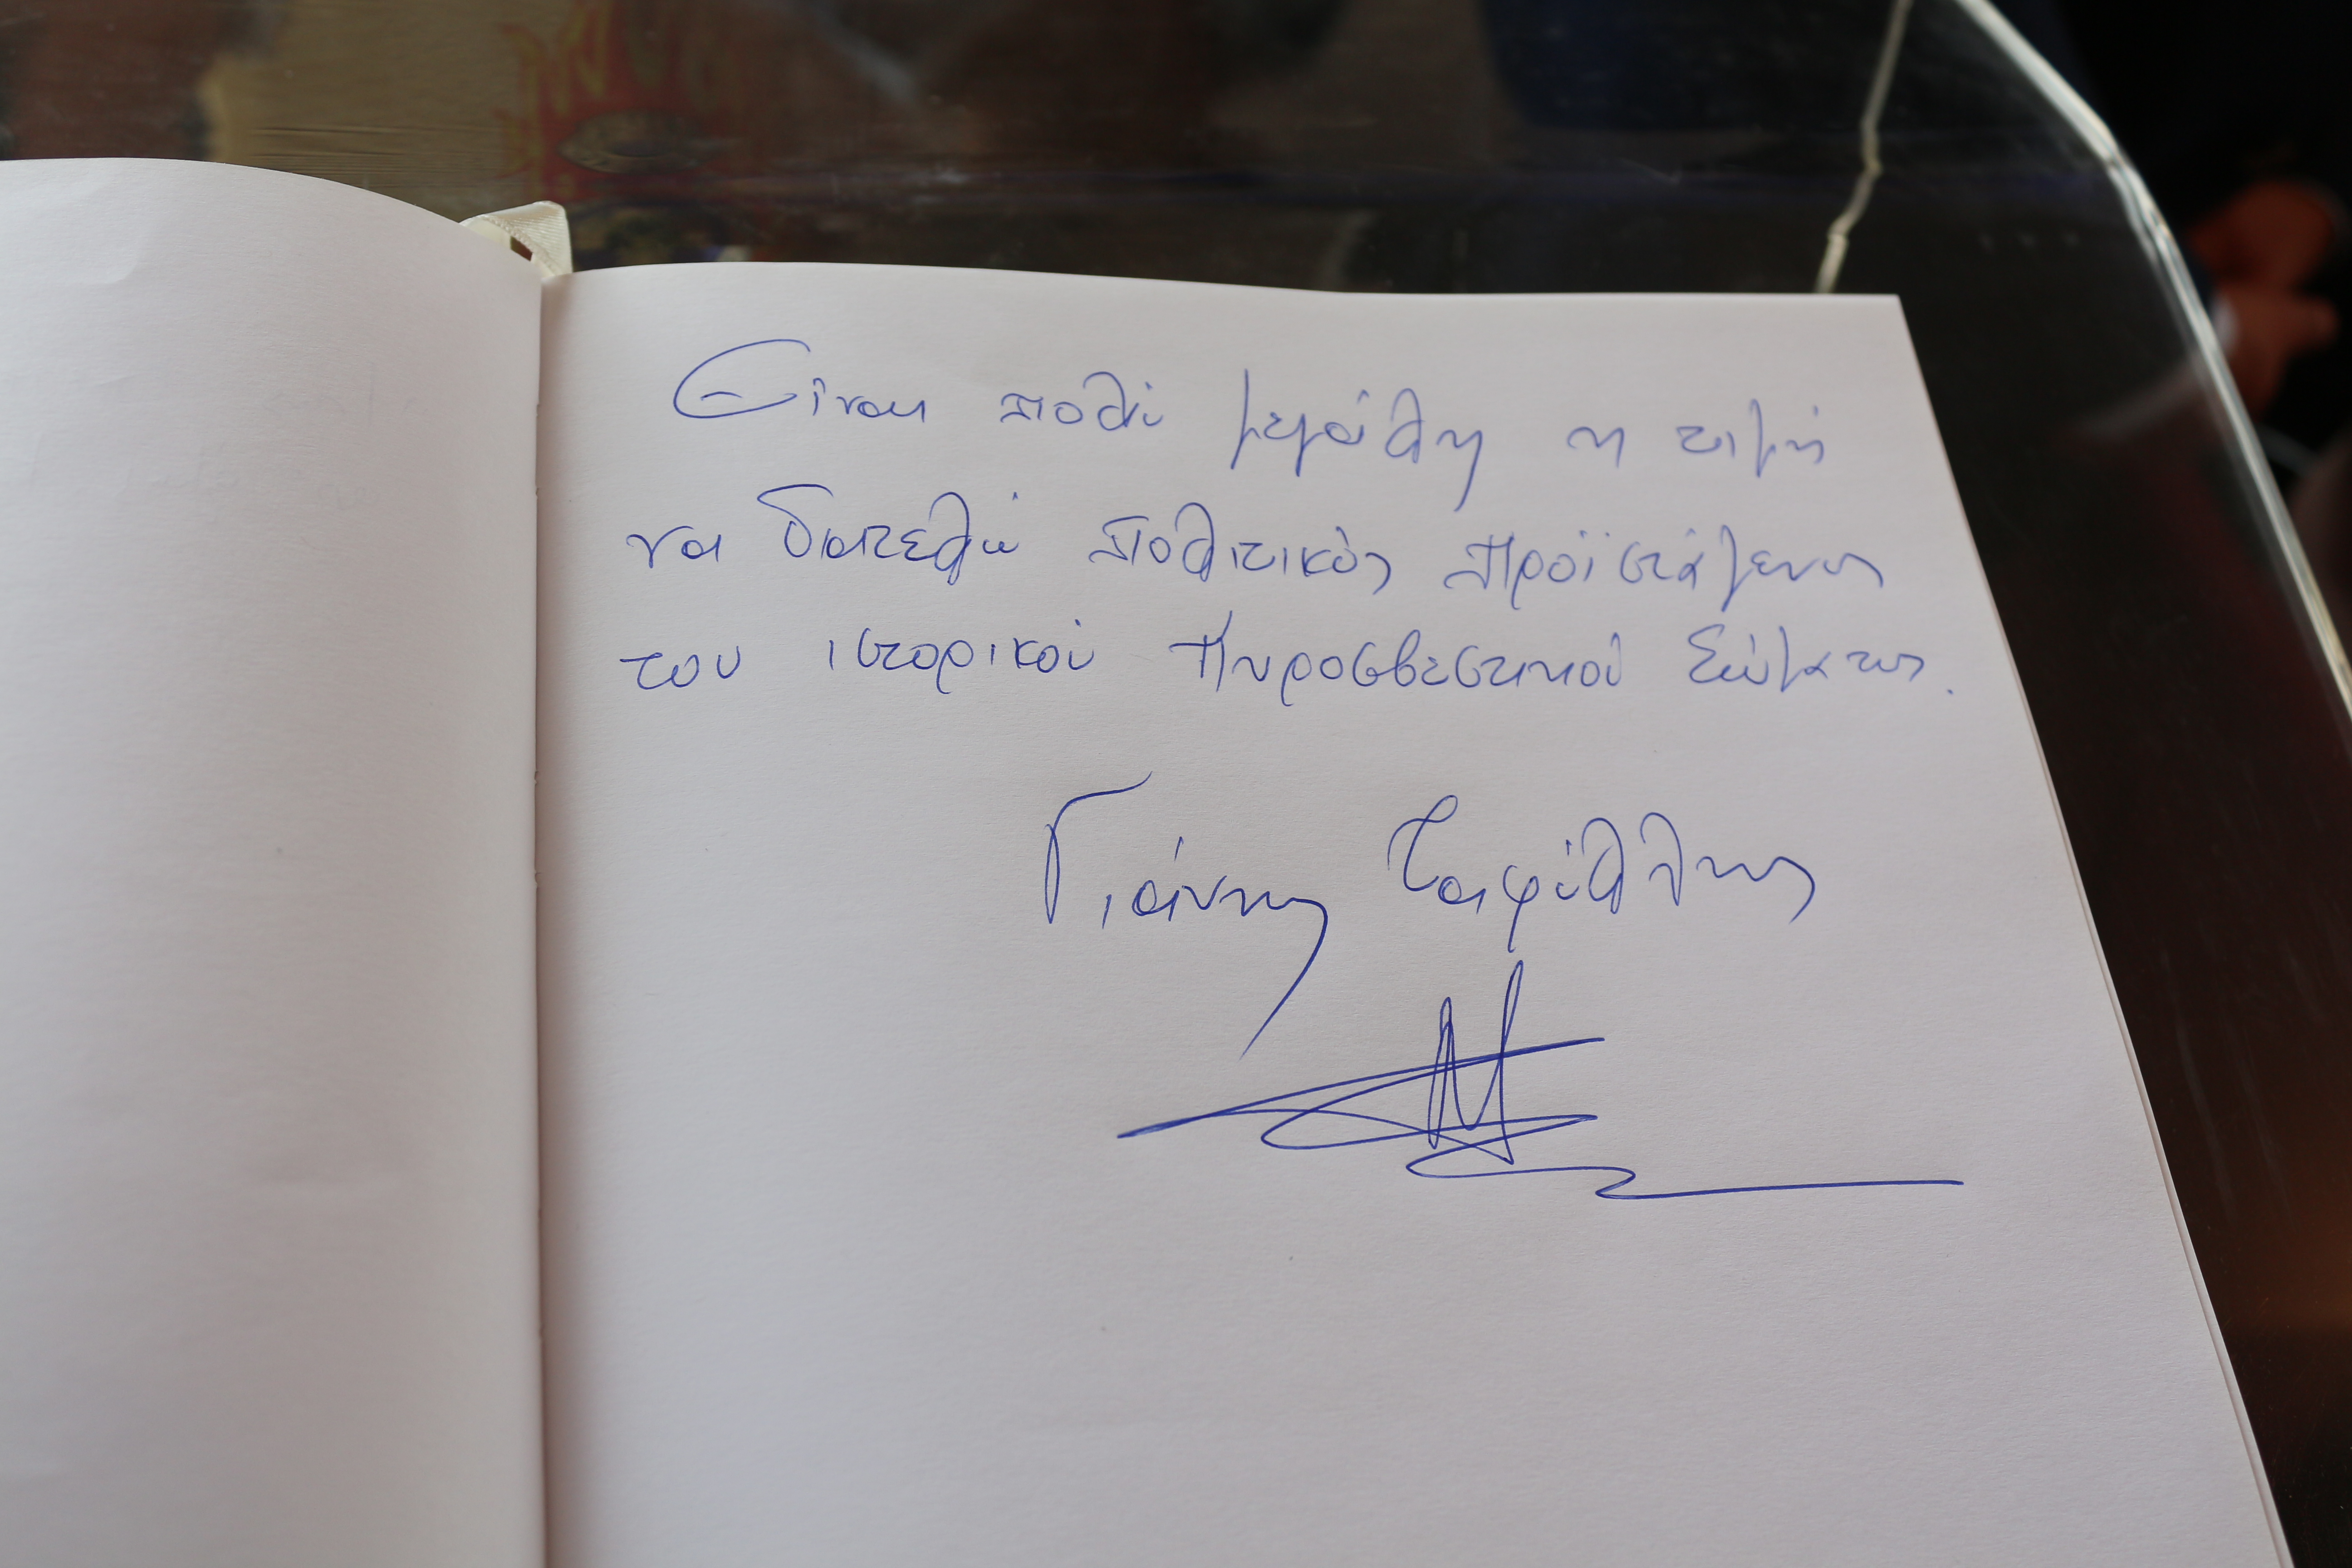 Είναι πολύ μεγάλη η τιμή
να διατελώ πολιτικός προϊστάμενος
του ιστορικού Πυροσβεστικού Σώματος.
Γιάννης Ταφύλλης